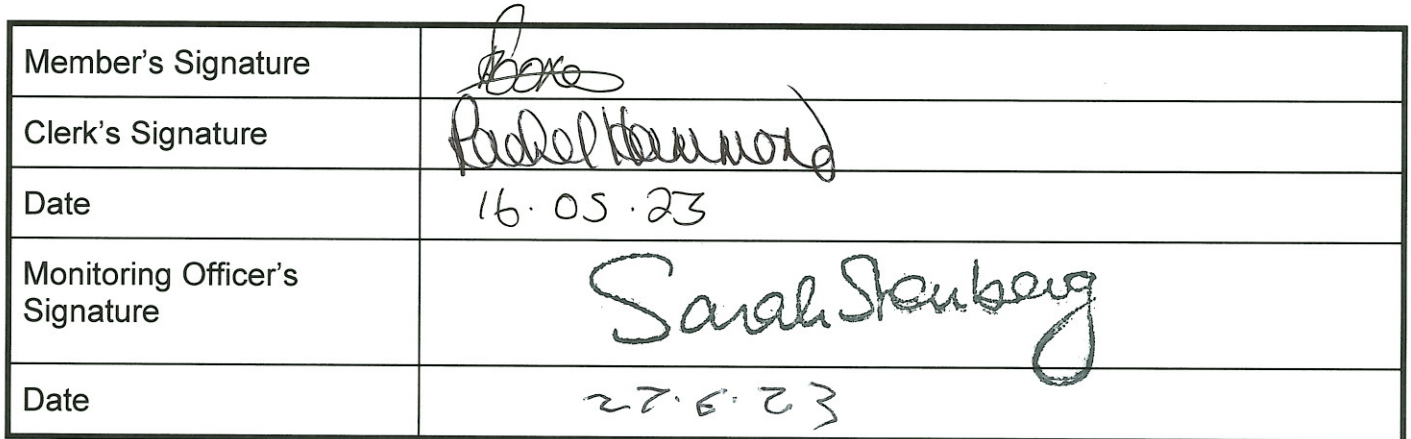 Member's Signature
Clerk's Signature Rachel Hammond
Date 16.05.23
Monitoring Officer's
Signature Sarah Stenberg
Date